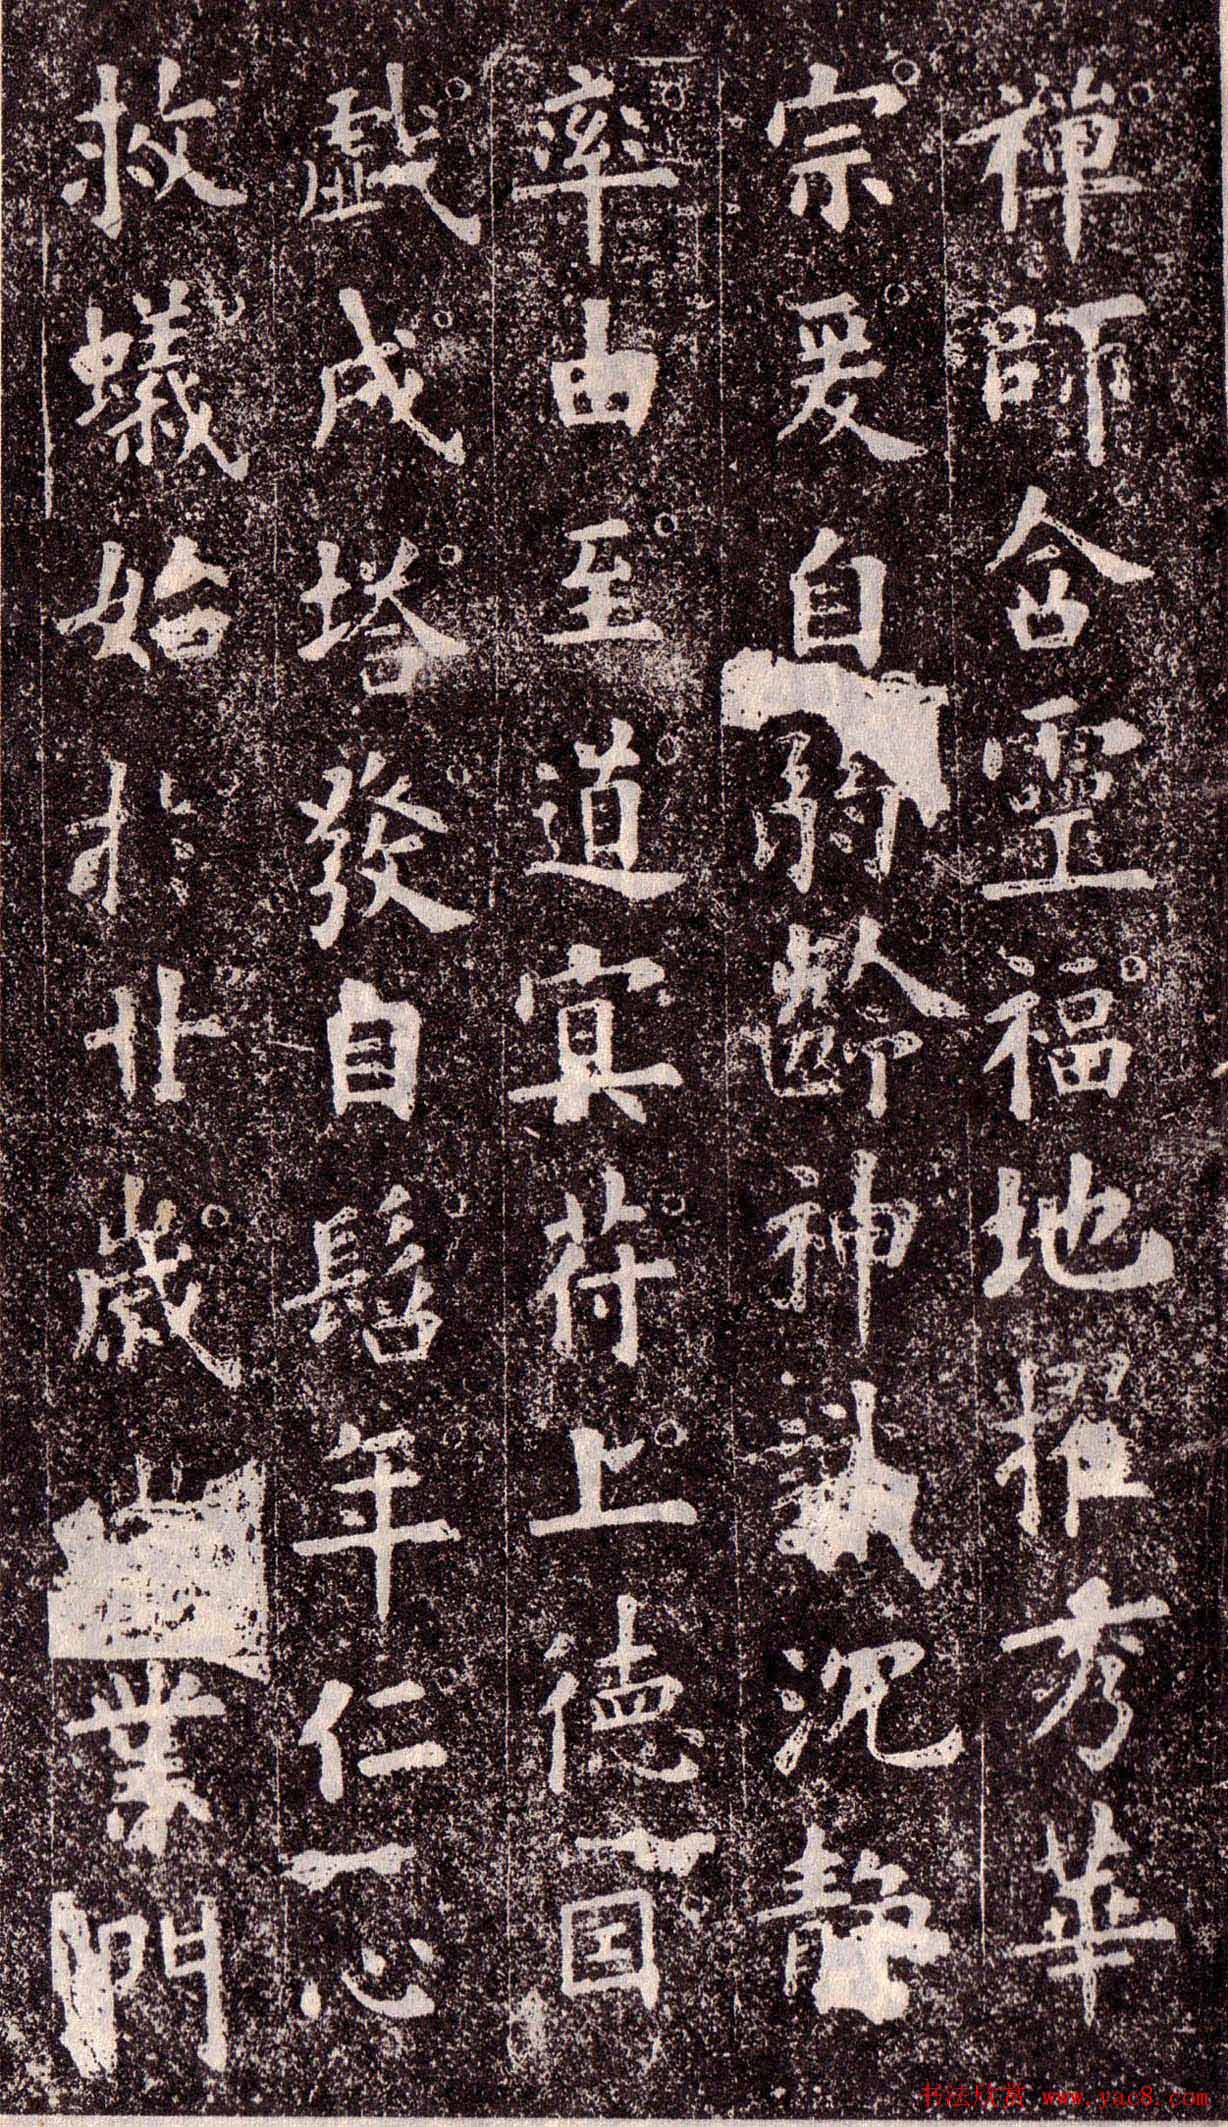 禪師含靈福地擢秀華
宗爰自弱齡神識沉靜
率由至道冥符上德因
戲成塔發自髫年仁心
救蟻始於廿歲業門
书法欣赏 www.yac8.com